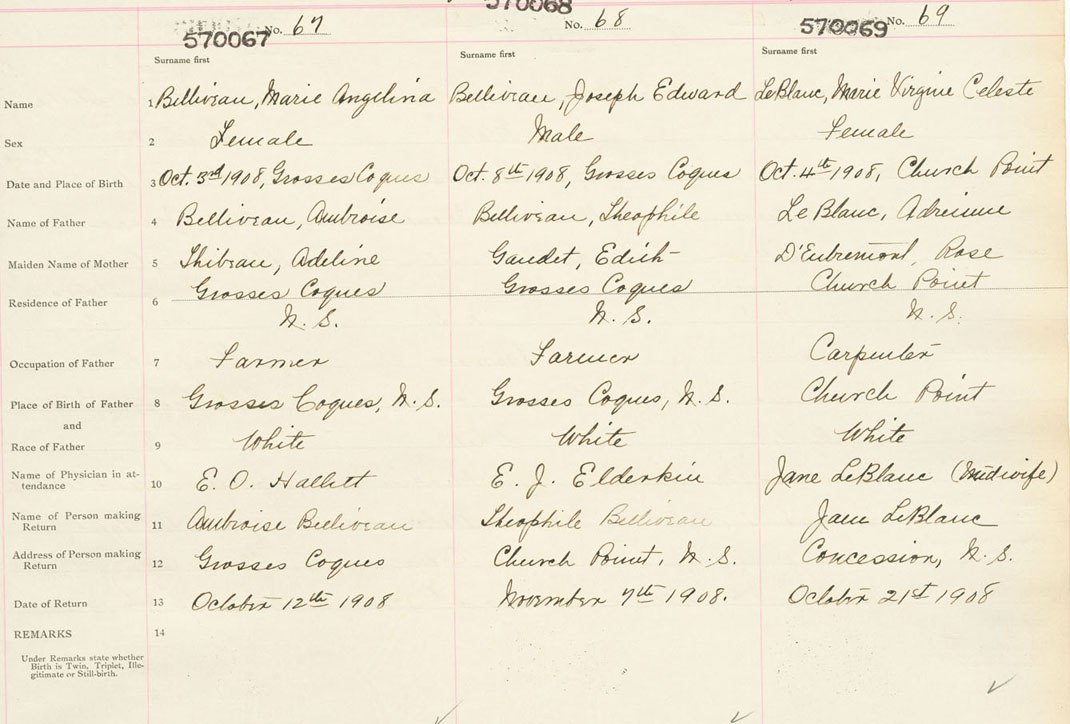 570067 No. 67
570068 No. 68
570069 No. 69
Surname first Surname first Surname first
Name 1 Belliveau, Marie Angelina Belliveau, Joseph Edward LeBlanc, Marie Virginie Celeste
Sex 2 Female Male Female
Date and Place of Birth 3 Oct. 3rd 1908, Grosses Coques Oct. 8th 1908, Grosses Coques Oct. 4th 1908, Church Point
Name of Father 4 Belliveau, Ambroise Belliveau, Theophile Le Blanc, Adrienne
Maiden Name of Mother 5 Thibeau, Adeline Gaudet, Edith D'Entremont, Rose
Residence of Father 6 Grosses Coques Grosses Coques Church Point
N. S. N. S. N. S.
Occupation of Father 7 Farmer Farmer Carpenter
Place of Birth of Father 8 Grosses Coques, N. S. Grosses Coques, N. S. Church Point
and
Race of Father 9 White White White
Name of Physician in at-
tendance 10 E. O. Hallett E. J. Elderkin Jane LeBlanc (Midwife)
Name of Person making
Return 11 Ambroise Belliveau Theophile Belliveau Jane LeBlanc
Address of Person making
Return 12 Grosses Coques Church Point, N. S. Concession, N. S.
Date of Return 13 October 12th 1908 November 7th 1908. October 21st 1908
REMARKS 14
Under Remarks state whether
Birth is Twin, Triplet, Ille-
gitimate or Still-birth.